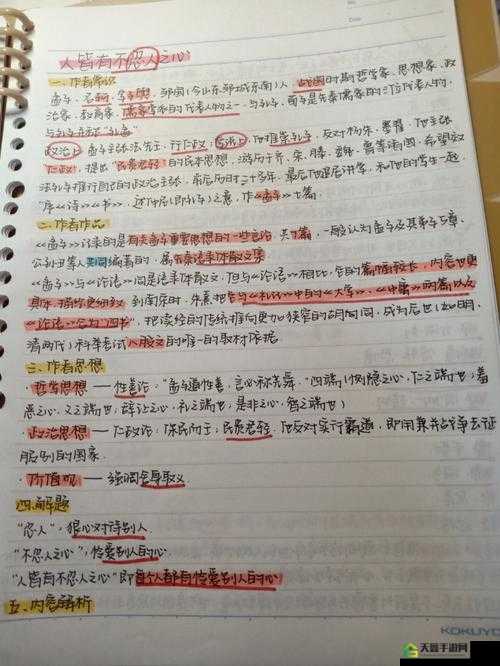 人皆有不忍人之心
一、作者常识
孟子,名轲,字子舆,邹国(今山东邹城东南)人,战国时期哲学家、思想家、政
治家、教育家,儒家学派的代表人物之一,与孔子、荀子是先秦儒家的三位代表人物,
与孔子并称"孔孟"
政治上,孟子主张法先王、行仁政;学说上,他推崇孔子,反对杨朱、墨翟,他主张
仁政,提出"民贵君轻"的民本思想,游历于齐、宋、滕、魏、鲁等诸国,希望效
法孔子推行自己的政治主张,前后历时二十多年,最后他退居讲学,和他的学生一起,
"序《诗》《书》,述仲尼(即孔子)之意,作《孟子》七篇
二、作者作品
《孟子》记录的是有关孟子重要思想的一些言论,共7篇,一般认为孟子及其弟子万章、
公孙丑等人共同编著的,属先秦语录体散文集
《孟子》与《论语》同是语录体散文,但与《论语》相比,它的篇幅较长,内容也更
具体,描写更细致,到南宋时,朱熹把它与《礼记》中的《大学》、《中庸》两篇以及
《论语》合为"四书",把读经的传统推向更加狭窄的胡同间,成为后世(如明、
清两代)科举考试八股文的唯一的取材依据。
三、作者思想
·哲学思想——性善论,"孟子道性善,言必称尧舜。"四端"(恻隐之心,仁之端也;羞
恶之心,义之端也;辞让之心,礼之端也;是非之心,智之端也)
·政治思想——仁政论:保民而王;民贵君轻。他反对实行霸道,即用兼并战争去征
服别的国家。
·价值观——强调舍身取义
四、解题
"忍人",狠心对待别人
"不忍人之心",怜爱别人的心
"人皆有不忍人之心"即每个人都有怜爱别人的心
五、内容解析
KOKUYO
天鑫手游网